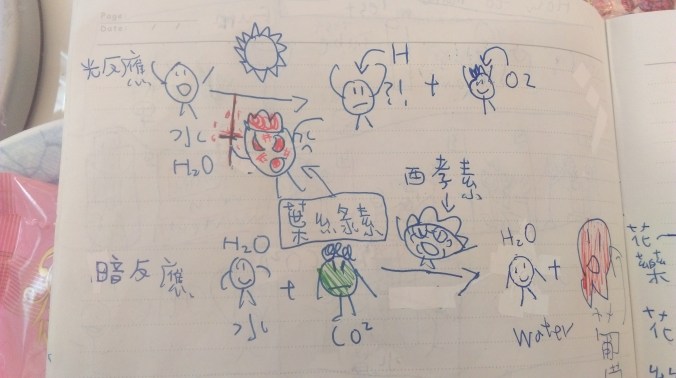 Page:
Date:
光反應
H
?! + O2
水
H₂O
葉綠素
酵素
暗反應
H₂O
+
水
CO²
H₂O
+
Water
花
葉
花